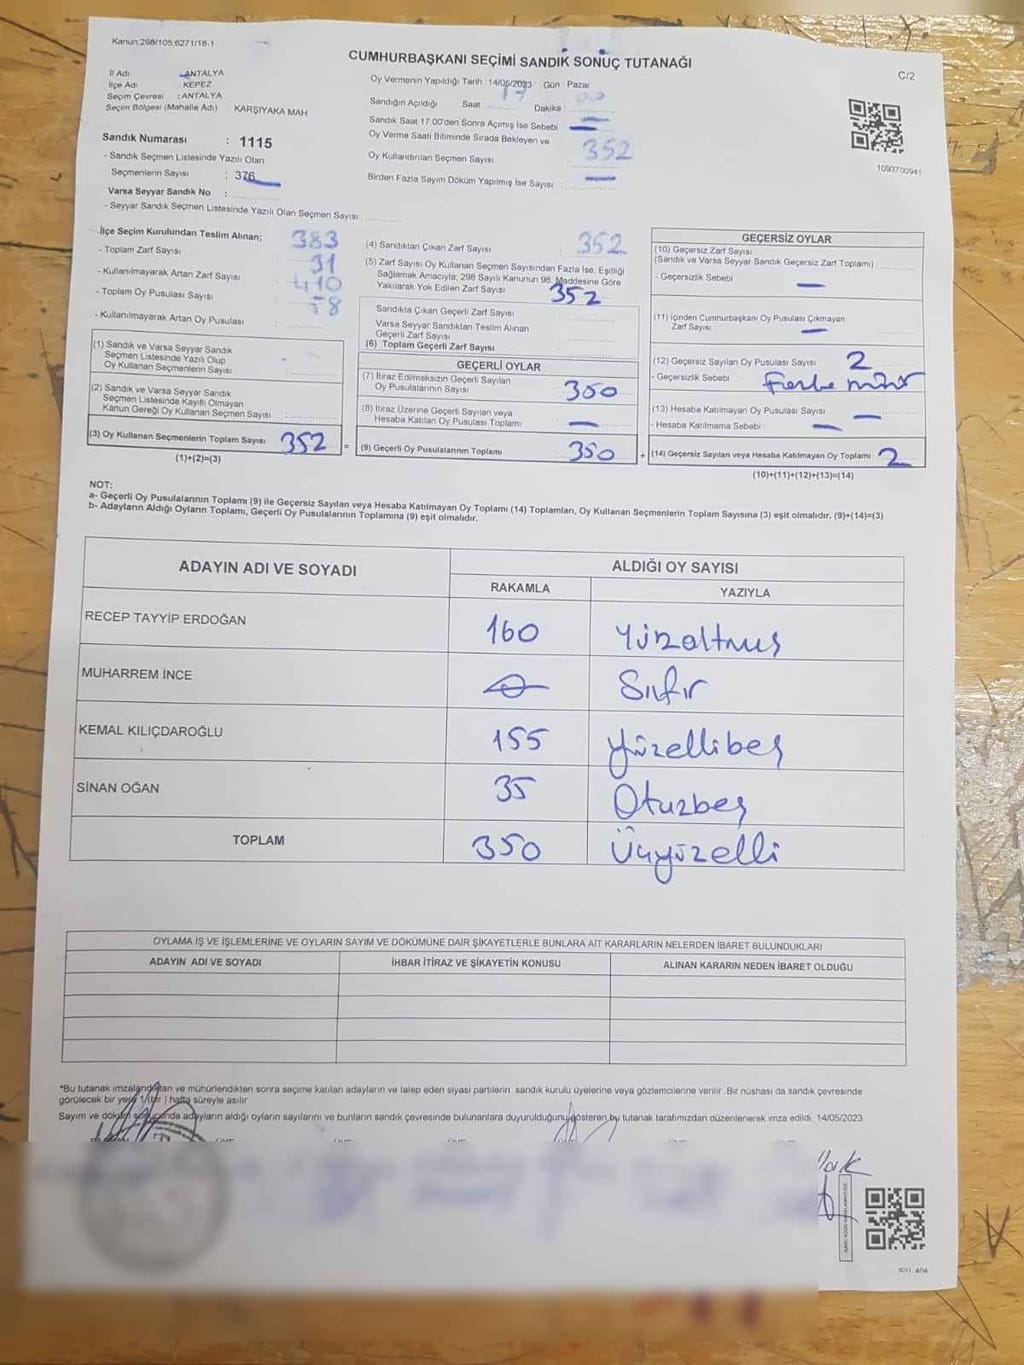 Kanun:298/105,6271/18-1
CUMHURBAŞKANI SEÇİMİ SANDIK SONUÇ TUTANAĞI
C/2
İl Adı : ANTALYA
İlçe Adı : KEPEZ
Seçim Çevresi : ANTALYA
Seçim Bölgesi (Mahalle Adı) KARŞIYAKA MAH
Oy Vermenin Yapıldığı Tarih :14/05/2023 Gün : Pazar
Sandığın Açıldığı Saat : 17 Dakika : 00
Sandık Saat 17.00'den Sonra Açımış İse Sebebi : —
Oy Verme Saati Bitiminde Sırada Bekleyen ve
Oy Kullandırılan Seçmen Sayısı : 352
Birden Fazla Sayım Döküm Yapılmış İse Sayısı : —
1093700941
Sandık Numarası : 1115
- Sandık Seçmen Listesinde Yazılı Olan
Seçmenlerin Sayısı : 376
Varsa Seyyar Sandık No :
- Seyyar Sandık Seçmen Listesinde Yazılı Olan Seçmen Sayısı:
İlçe Seçim Kurulundan Teslim Alınan;
- Toplam Zarf Sayısı : 383
- Kullanılmayarak Artan Zarf Sayısı : 31
- Toplam Oy Pusulası Sayısı : 410
- Kullanılmayarak Artan Oy Pusulası : 58
(1) Sandık ve Varsa Seyyar Sandık
Seçmen Listesinde Yazılı Olup
Oy Kullanan Seçmenlerin Sayısı :
(2) Sandık ve Varsa Seyyar Sandık
Seçmen Listesinde Kayıtlı Olmayan
Kanun Gereği Oy Kullanan Seçmen Sayısı :
(3) Oy Kullanan Seçmenlerin Toplam Sayısı 352
(1)+(2)=(3)
(4) Sandıktan Çıkan Zarf Sayısı : 352
(5) Zarf Sayısı Oy Kullanan Seçmen Sayısından Fazla İse, Eşitliği
Sağlamak Amacıyla; 298 Sayılı Kanunun 98. Maddesine Göre
Yakılarak Yok Edilen Zarf Sayısı
352
Sandıkta Çıkan Geçerli Zarf Sayısı
Varsa Seyyar Sandıktan Teslim Alınan
Geçerli Zarf Sayısı
(6) Toplam Geçerli Zarf Sayısı
GEÇERLİ OYLAR
(7) İtiraz Edilmeksizin Geçerli Sayılan
Oy Pusulalarının Sayısı : 350
(8) İtiraz Üzerine Geçerli Sayılan veya
Hesaba Katılan Oy Pusulası Toplamı : —
= (9) Geçerli Oy Pusulalarının Toplamı : 350
GEÇERSİZ OYLAR
(10) Geçersiz Zarf Sayısı
(Sandık ve Varsa Seyyar Sandık Geçersiz Zarf Toplamı)
- Geçersizlik Sebebi : —
(11) İçinden Cumhurbaşkanı Oy Pusulası Çıkmayan
Zarf Sayısı : —
(12) Geçersiz Sayılan Oy Pusulası Sayısı : 2
- Geçersizlik Sebebi : Fazla mühür
(13) Hesaba Katılmayan Oy Pusulası Sayısı : —
- Hesaba Katılmama Sebebi : —
+ (14) Geçersiz Sayılan veya Hesaba Katılmayan Oy Toplamı : 2
(10)+(11)+(12)+(13)=(14)
NOT:
a- Geçerli Oy Pusulalarının Toplamı (9) ile Geçersiz Sayılan veya Hesaba Katılmayan Oy Toplamı (14) Toplamları, Oy Kullanan Seçmenlerin Toplam Sayısına (3) eşit olmalıdır. (9)+(14)=(3)
b- Adayların Aldığı Oyların Toplamı, Geçerli Oy Pusulalarının Toplamına (9) eşit olmalıdır.
ADAYIN ADI VE SOYADI
ALDIĞI OY SAYISI
RAKAMLA YAZIYLA
RECEP TAYYİP ERDOĞAN 160 Yüzaltmış
MUHARREM İNCE 0 Sıfır
KEMAL KILIÇDAROĞLU 155 Yüzellibeş
SİNAN OĞAN 35 Otuzbeş
TOPLAM 350 Üçyüzelli
OYLAMA İŞ VE İŞLEMLERİNE VE OYLARIN SAYIM VE DÖKÜMÜNE DAİR ŞİKAYETLERLE BUNLARA AİT KARARLARIN NELERDEN İBARET BULUNDUKLARI
ADAYIN ADI VE SOYADI İHBAR İTİRAZ VE ŞİKAYETİN KONUSU ALINAN KARARIN NEDEN İBARET OLDUĞU
*Bu tutanak imzalandıktan ve mühürlendikten sonra seçime katılan adayların ve talep eden siyasi partilerin sandık kurulu üyelerine veya gözlemcilerine verilir. Bir nüshası da sandık çevresinde
görülecek bir yere 1 (bir ) hafta süreyle asılır.
Sayım ve döküm sonucunda adayların aldığı oyların sayılarını ve bunların sandık çevresinde bulunanlara duyurulduğunu gösteren bu tutanak tarafımızdan düzenlenerek imza edildi. 14/05/2023